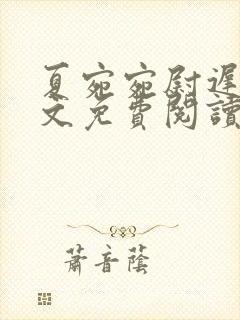 夏宛宛尉遲
文免費閱讀
蕭音蔭